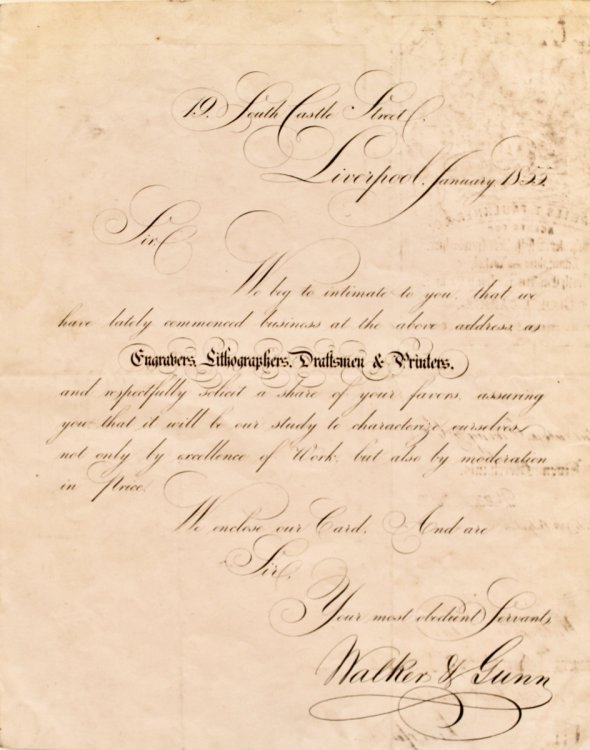 19. South Castle Street.
Liverpool, January 1855.
Sir,
We beg to intimate to you, that we
have lately commenced business at the above address, as
Engravers, Lithographers, Draftsmen & Printers,
and respectfully solicit a share of your favors, assuring
you that it will be our study to characterize ourselves,
not only by excellence of Work, but also by moderation
in Price.
We enclose our Card, And are
Sir,
Your most obedient Servants,
Walker & Gunn